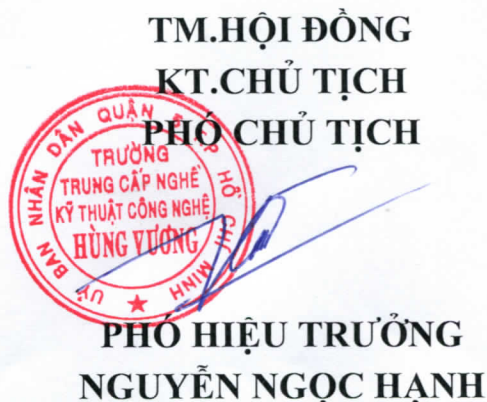 TM.HỘI ĐỒNG
KT.CHỦ TỊCH
PHÓ CHỦ TỊCH
ỦY BAN NHÂN DÂN QUẬN
HỒ CHÍ MINH
TRƯỜNG
TRUNG CẤP NGHỀ
KỸ THUẬT CÔNG NGHỆ
HÙNG VƯƠNG
PHÓ HIỆU TRƯỞNG
NGUYỄN NGỌC HẠNH